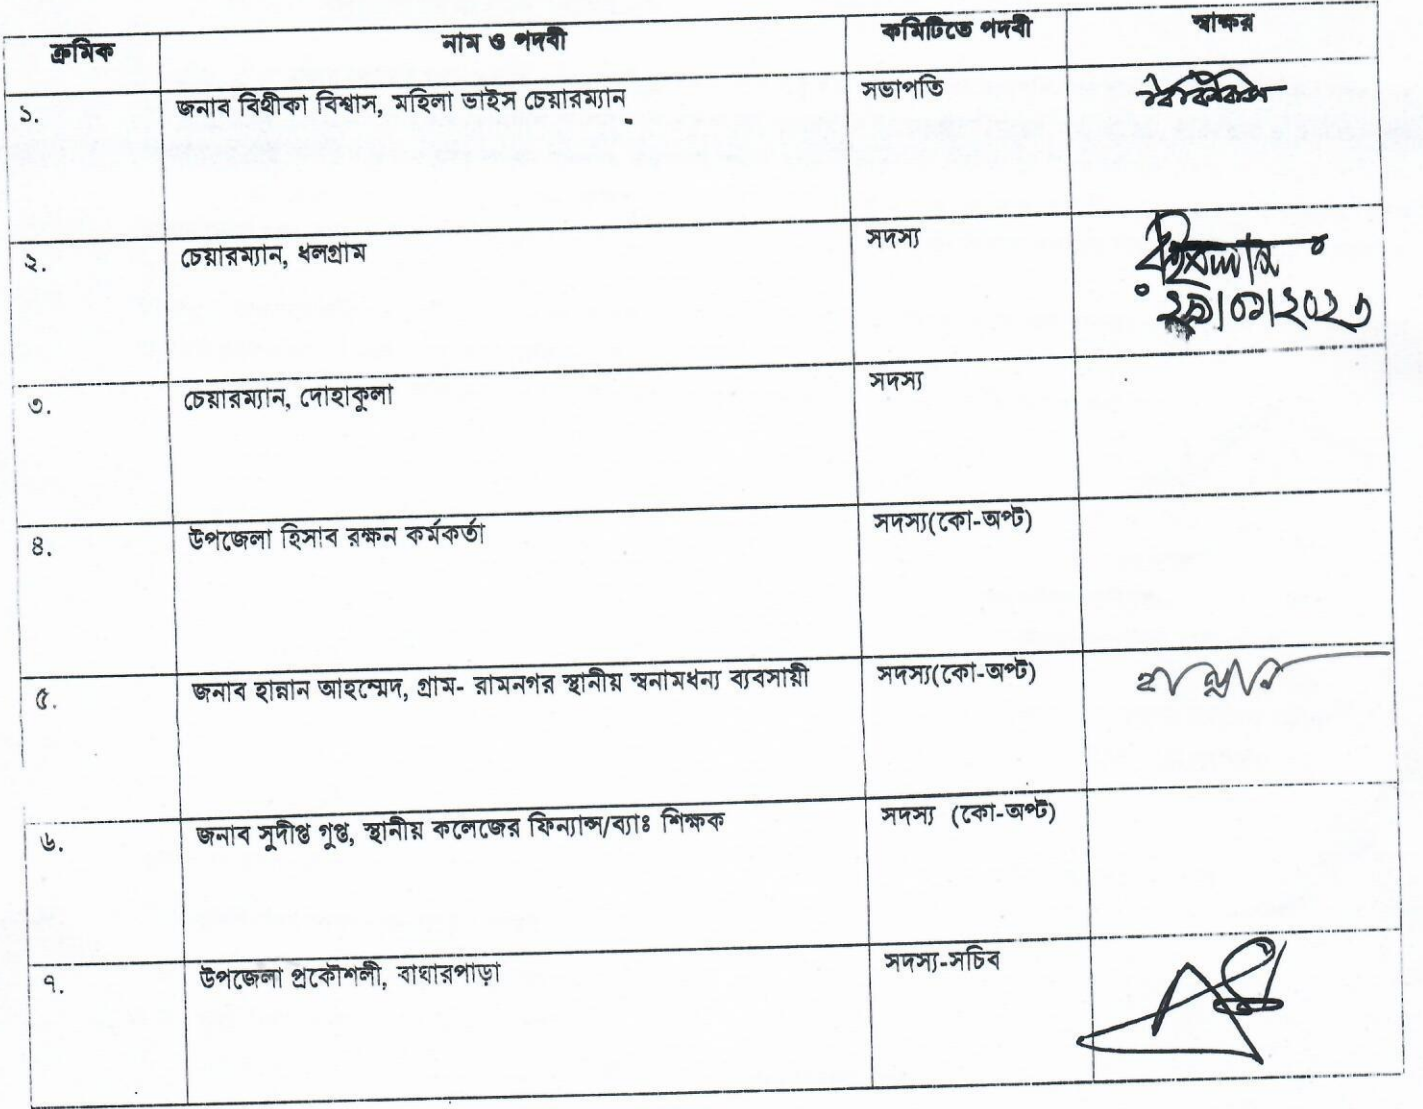 ক্রমিক নাম ও পদবী কমিটিতে পদবী স্বাক্ষর
১. জনাব বিথীকা বিশ্বাস, মহিলা ভাইস চেয়ারম্যান সভাপতি
২. চেয়ারম্যান, ধলগ্রাম সদস্য
২৯|০১|২০২৩
৩. চেয়ারম্যান, দোহাকুলা সদস্য
৪. উপজেলা হিসাব রক্ষন কর্মকর্তা সদস্য(কো-অপ্ট)
৫. জনাব হান্নান আহম্মেদ, গ্রাম- রামনগর স্থানীয় স্বনামধন্য ব্যবসায়ী সদস্য(কো-অপ্ট) হান্নান
৬. জনাব সুদীপ্ত গুপ্ত, স্থানীয় কলেজের ফিন্যান্স/ব্যাঃ শিক্ষক সদস্য (কো-অপ্ট)
৭. উপজেলা প্রকৌশলী, বাঘারপাড়া সদস্য-সচিব